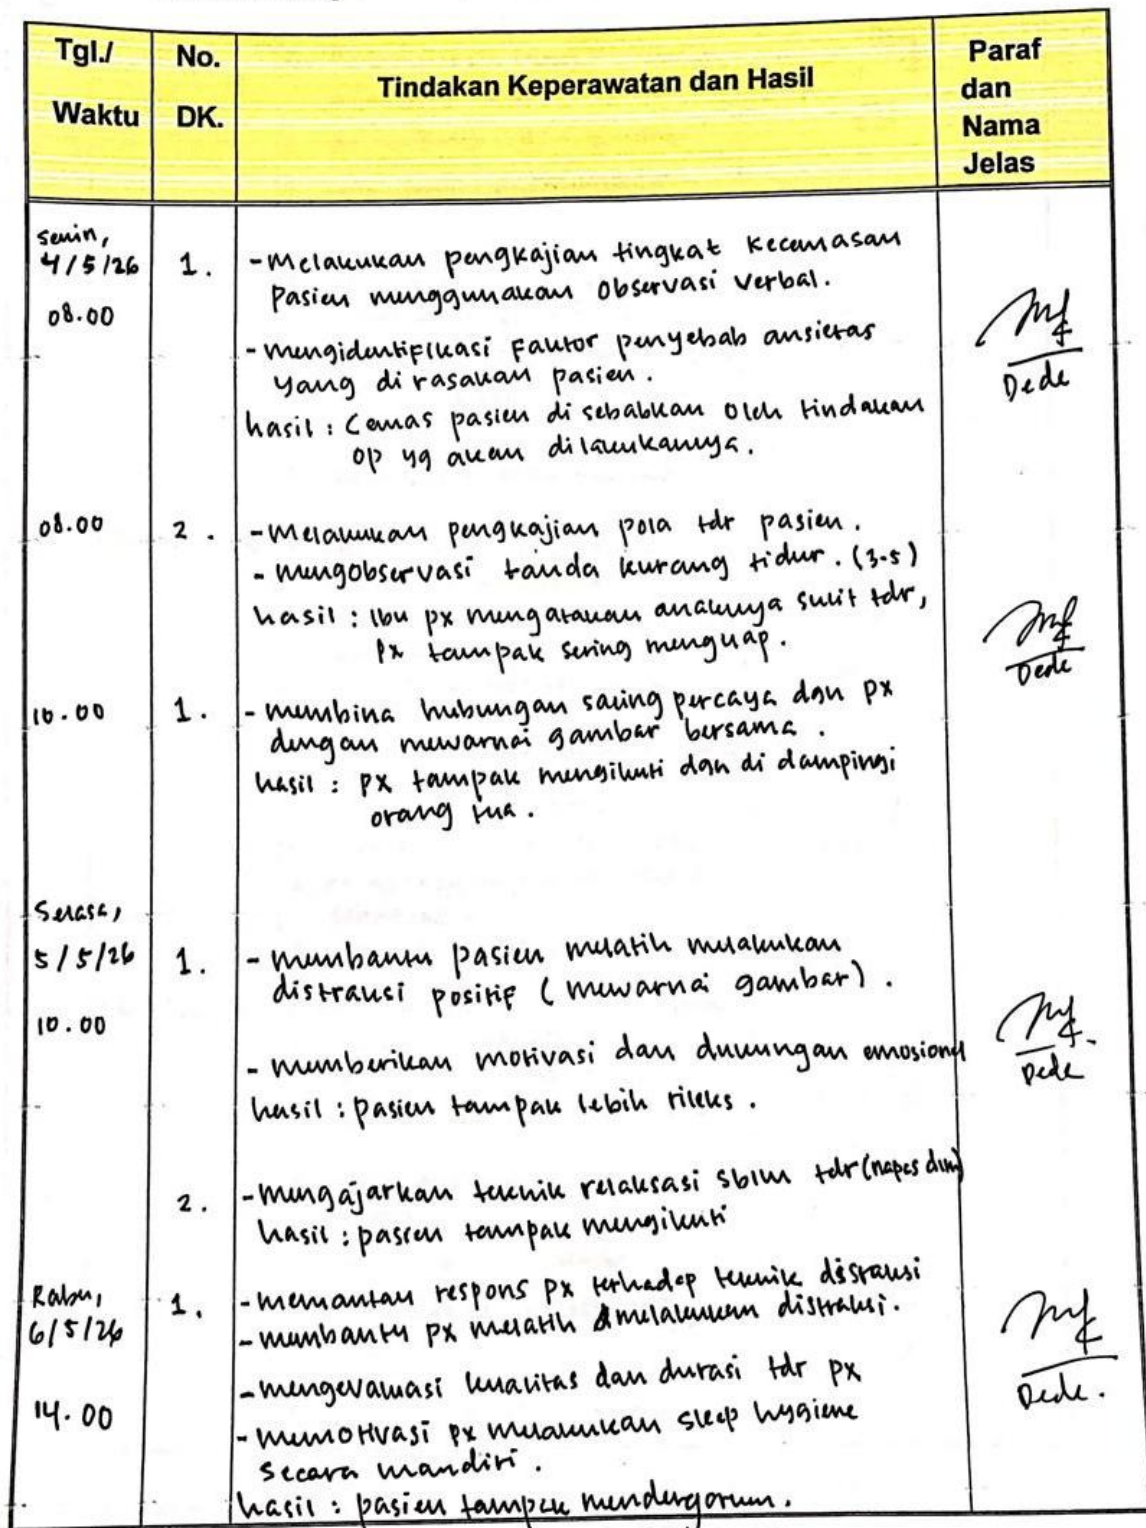 Tgl./ Waktu
No. DK.
Tindakan Keperawatan dan Hasil
Paraf dan Nama Jelas
Senin,
4/5/26
08.00
1.
- Melakukan pengkajian tingkat kecemasan
pasien menggunakan observasi verbal.
- mengidentifikasi faktor penyebab ansietas
yang di rasakan pasien.
hasil : Cemas pasien di sebabkan oleh tindakan
op yg akan dilakukannya.
Dede
08.00
2.
- Melakukan pengkajian pola tdr pasien.
- mengobservasi tanda kurang tidur. (3-5)
hasil : ibu px mengatakan anaknya sulit tdr,
px tampak sering menguap.
Dede
10.00
1.
- membina hubungan saling percaya dgn px
dengan mewarnai gambar bersama.
hasil : px tampak mengikuti dgn di dampingi
orang tua.
Selasa,
5/5/26
10.00
1.
- membantu pasien melatih melakukan
distraksi positif (mewarnai gambar).
- memberikan motivasi dan dukungan emosional
hasil : pasien tampak lebih rileks.
Dede
2.
- mengajarkan teknik relaksasi sblm tdr (napas dlm)
hasil : pasien tampak mengikuti
Rabu,
6/5/26
14.00
1.
- memantau respons px terhadap teknik distraksi
- membantu px melatih melakukan distraksi.
- mengevaluasi kualitas dan durasi tdr px
- memotivasi px melakukan sleep hygiene
secara mandiri.
hasil : pasien tampak
Dede.